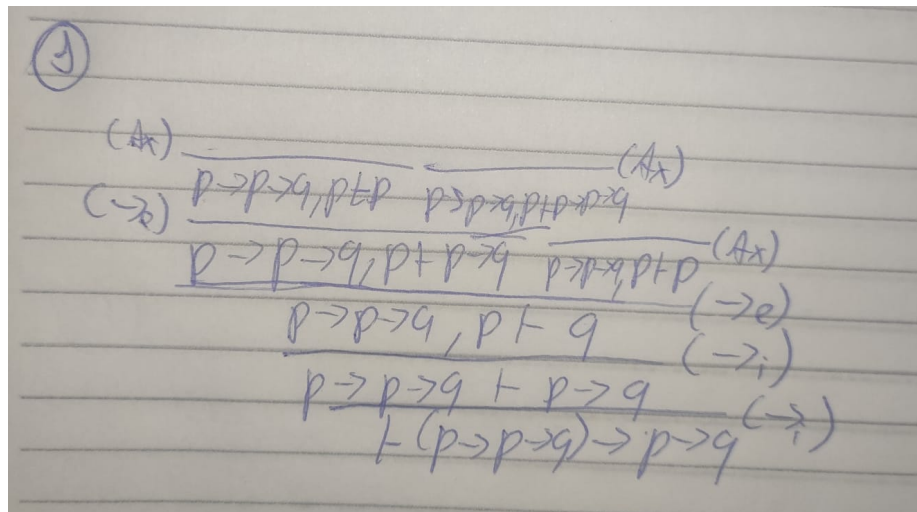 1
(Ax) (Ax)
p->p->q, p ⊢ p p->p->q, p ⊢ p->p->q
(->e)
p->p->q, p ⊢ p->q p->p->q, p ⊢ p (Ax)
(->e)
p->p->q, p ⊢ q
(->i)
p->p->q ⊢ p->q
(->i)
⊢ (p->p->q)->p->q